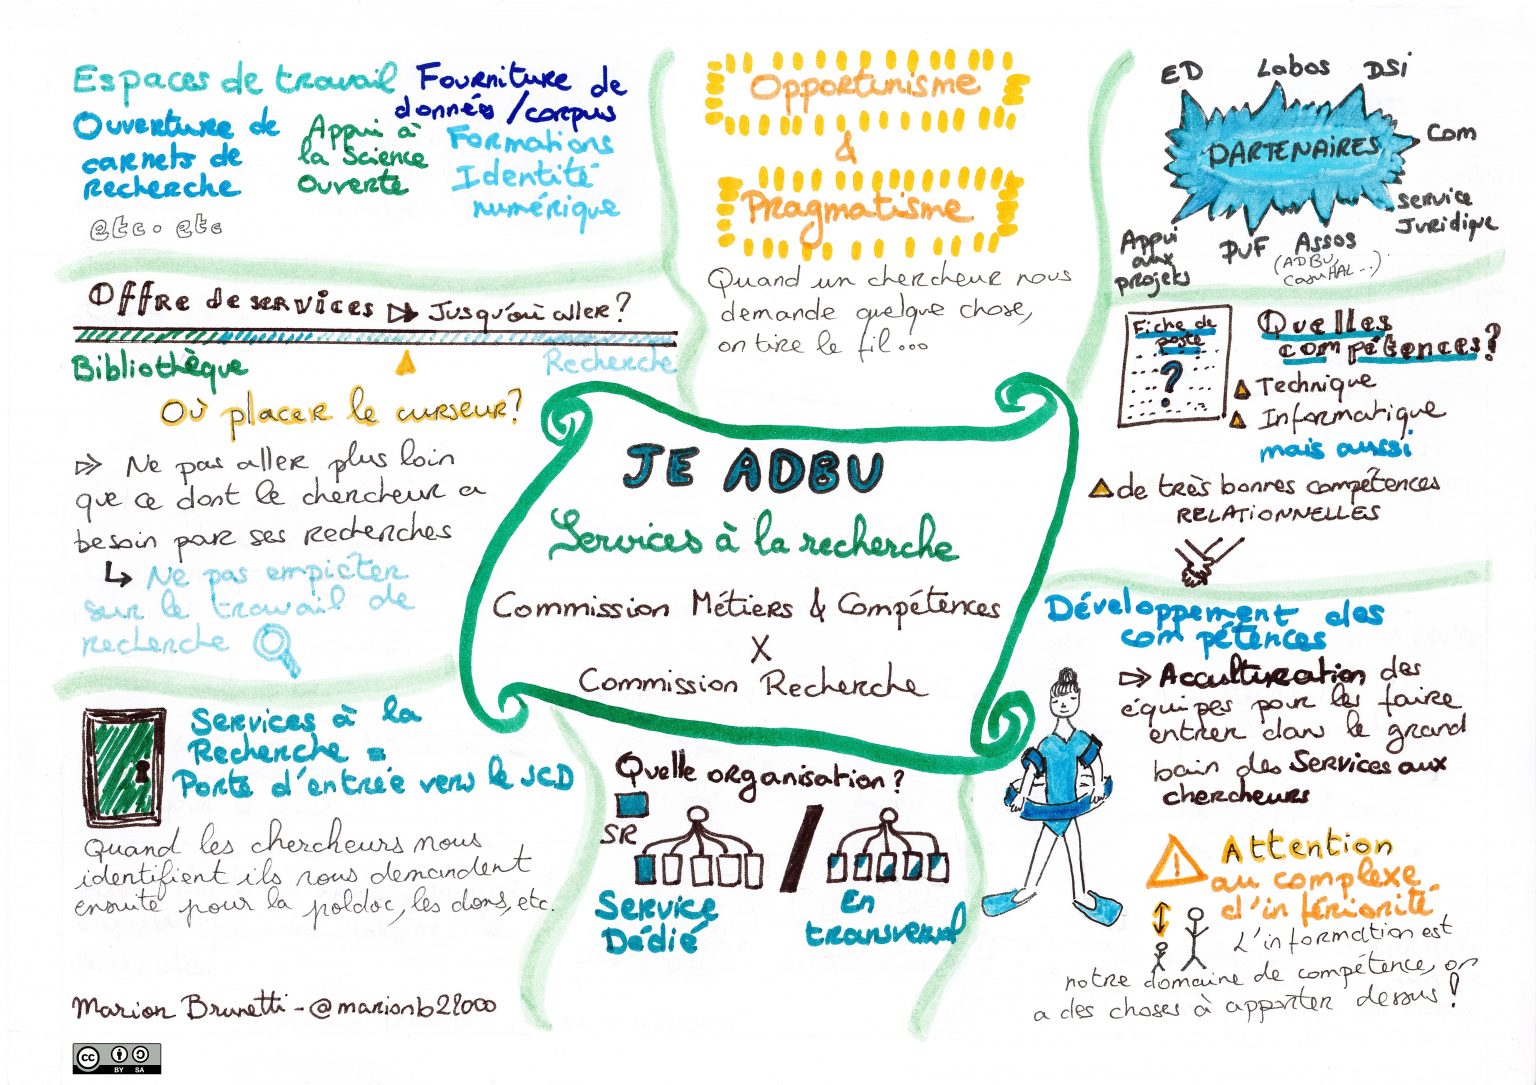 Espaces de travail
Fourniture de
données / corpus
Ouverture de
carnets de
recherche
Appui à
la Science
Ouverte
Formations
Identité
numérique
etc. etc
Opportunisme
&
Pragmatisme
Quand un chercheur nous
demande quelque chose,
on tire le fil...
ED
Labos
DSi
Com
PARTENAIRES
Service
Juridique
Appui
aux
projets
PUF
Assos
(ADBU,
CasuHAL...)
Offre de services ⇒ Jusqu'où aller?
Bibliothèque
Recherche
Où placer le curseur?
⇒ Ne pas aller plus loin
que ce dont le chercheur a
besoin par ses recherches
↳ Ne pas empiéter
sur le travail de
recherche
JE ADBU
Services à la recherche
Commission Métiers & Compétences
X
Commission Recherche
Fiche de
poste
?
Quelles
compétences?
Technique
Informatique
mais aussi
de très bonnes compétences
RELATIONNELLES
Développement des
compétences
⇒ Acculturation des
équipes pour les faire
entrer dans le grand
bain des Services aux
chercheurs
Attention
au complexe
d'infériorité
L'information est
notre domaine de compétence, on
a des choses à apporter dessus!
Services à la
Recherche =
Porte d'entrée vers le SCD
Quand les chercheurs nous
identifient ils nous demandent
ensuite pour la poldoc, les dons, etc.
Quelle organisation?
SR
Service
Dédié
/
En
transversal
Marion Brunetti - @marionb22000
cc
BY SA